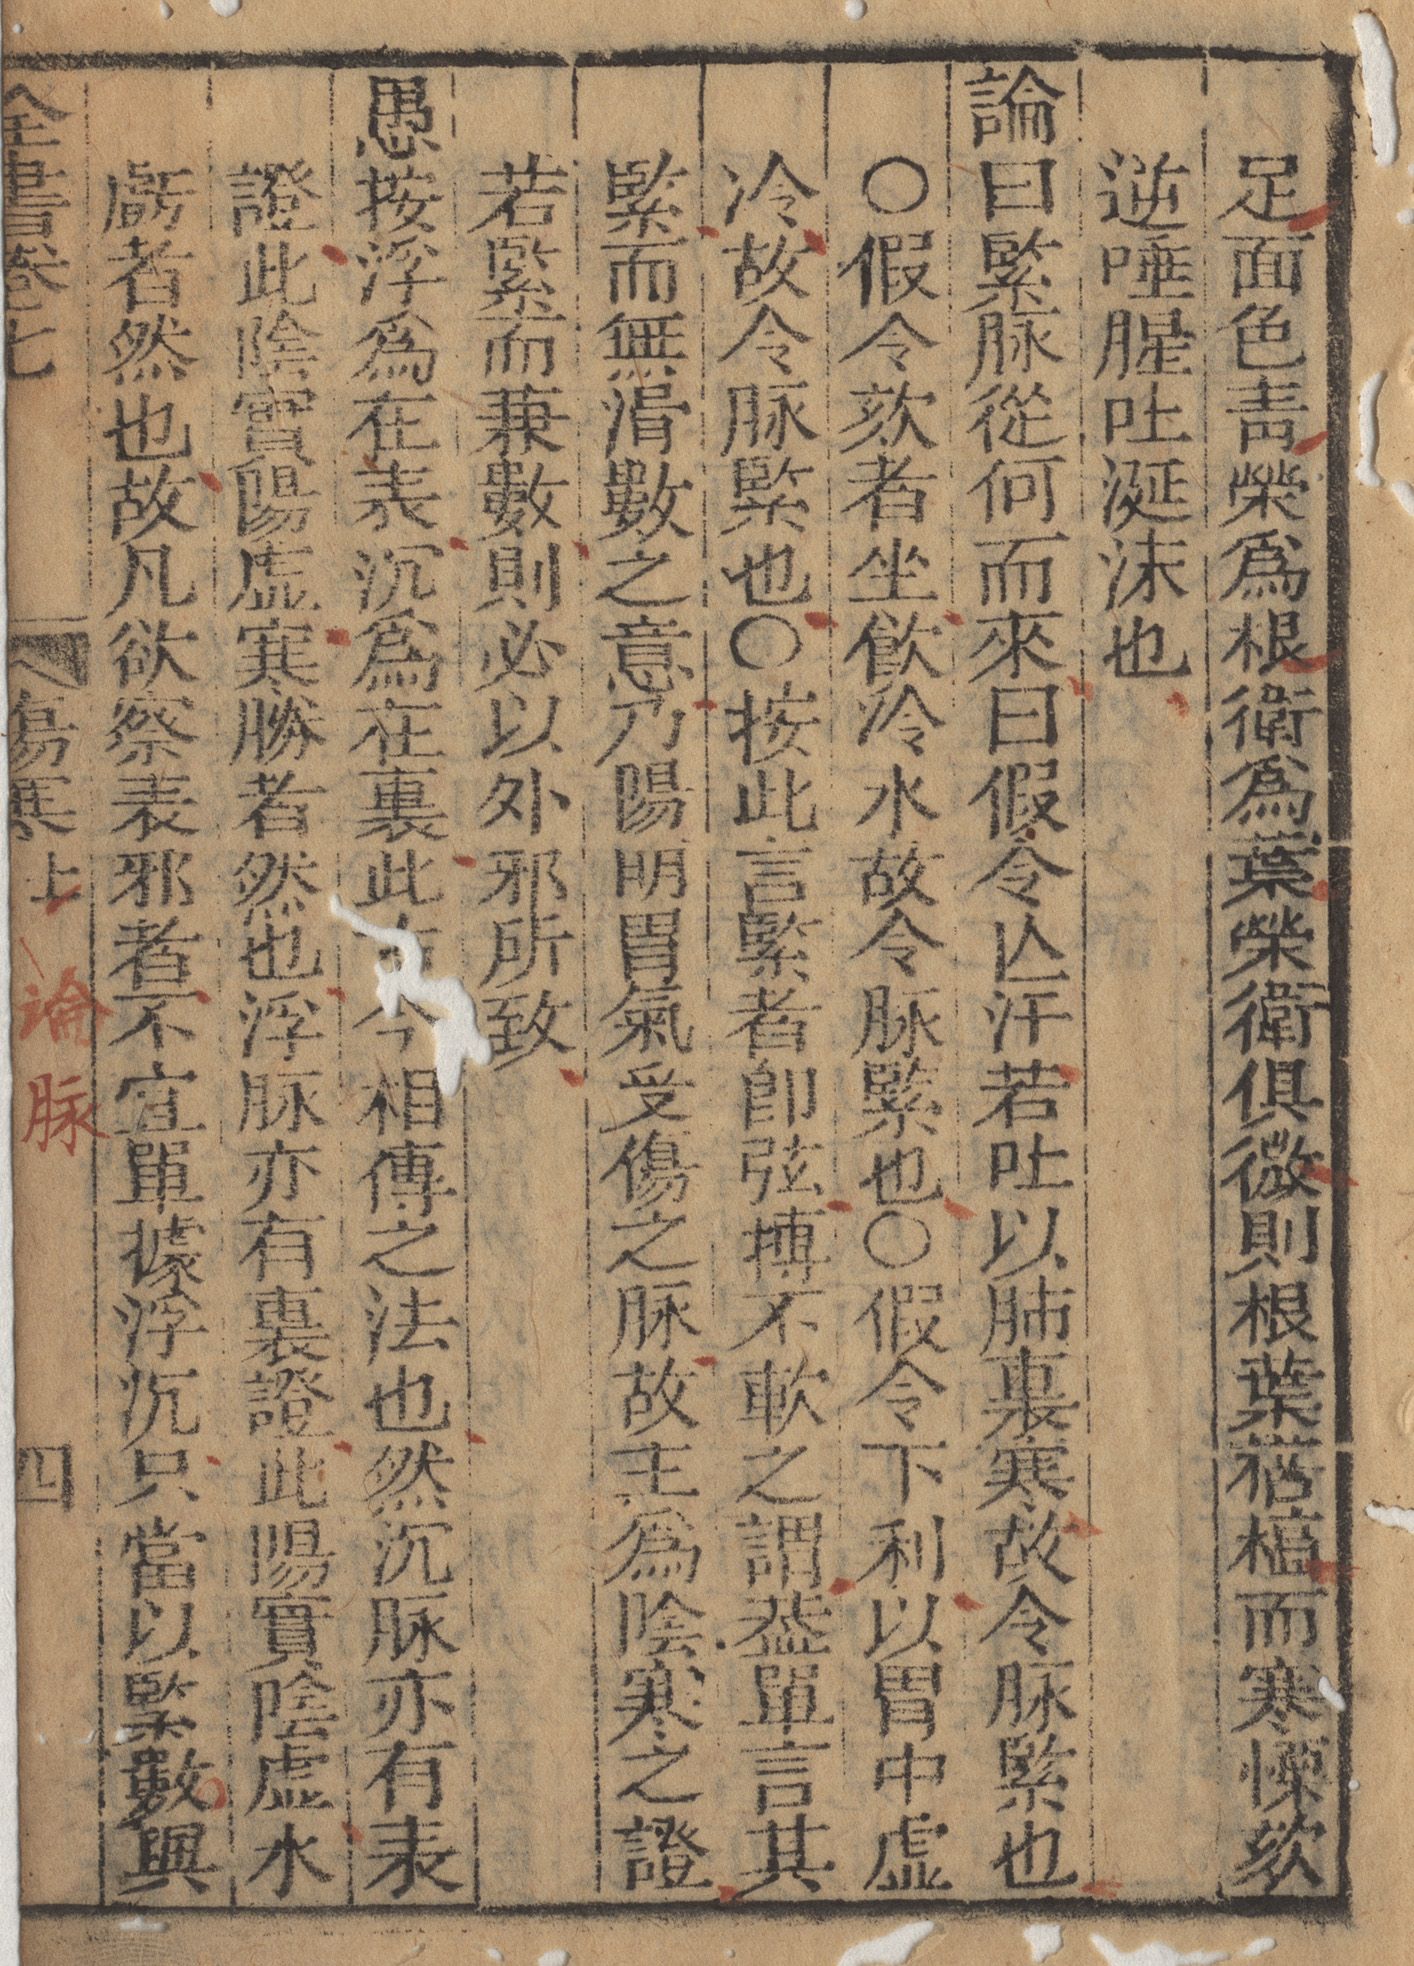 足面色青榮爲根衛爲葉榮衛俱微則根葉枯槁而寒慄欬
逆唾腥吐涎沫也
論曰緊脉從何而來曰假令亾汗若吐以肺裏寒故令脉緊也
○假令欬者坐飲冷水故令脉緊也○假令下利以胃中虛
冷故令脉緊也○按此言緊者卽弦搏不軟之謂葢單言其
緊而無滑數之意乃陽明胃氣受傷之脉故主爲陰寒之證
若緊而兼數則必以外邪所致
愚按浮爲在表沉爲在裏此古今相傳之法也然沉脉亦有表
證此陰實陽虛寒勝者然也浮脉亦有裏證此陽實陰虛水
虧者然也故凡欲察表邪者不宜單據浮沉只當以緊數與
全書卷七
傷寒上
論脉
四